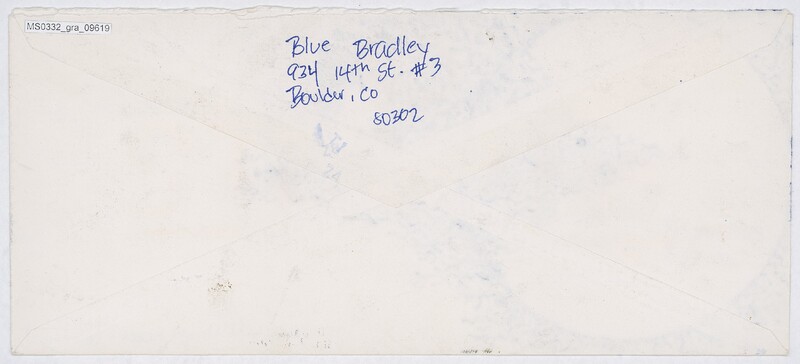 MS0332_gra_09619
Blue Bradley
934 14th St. #3
Boulder, CO
80302